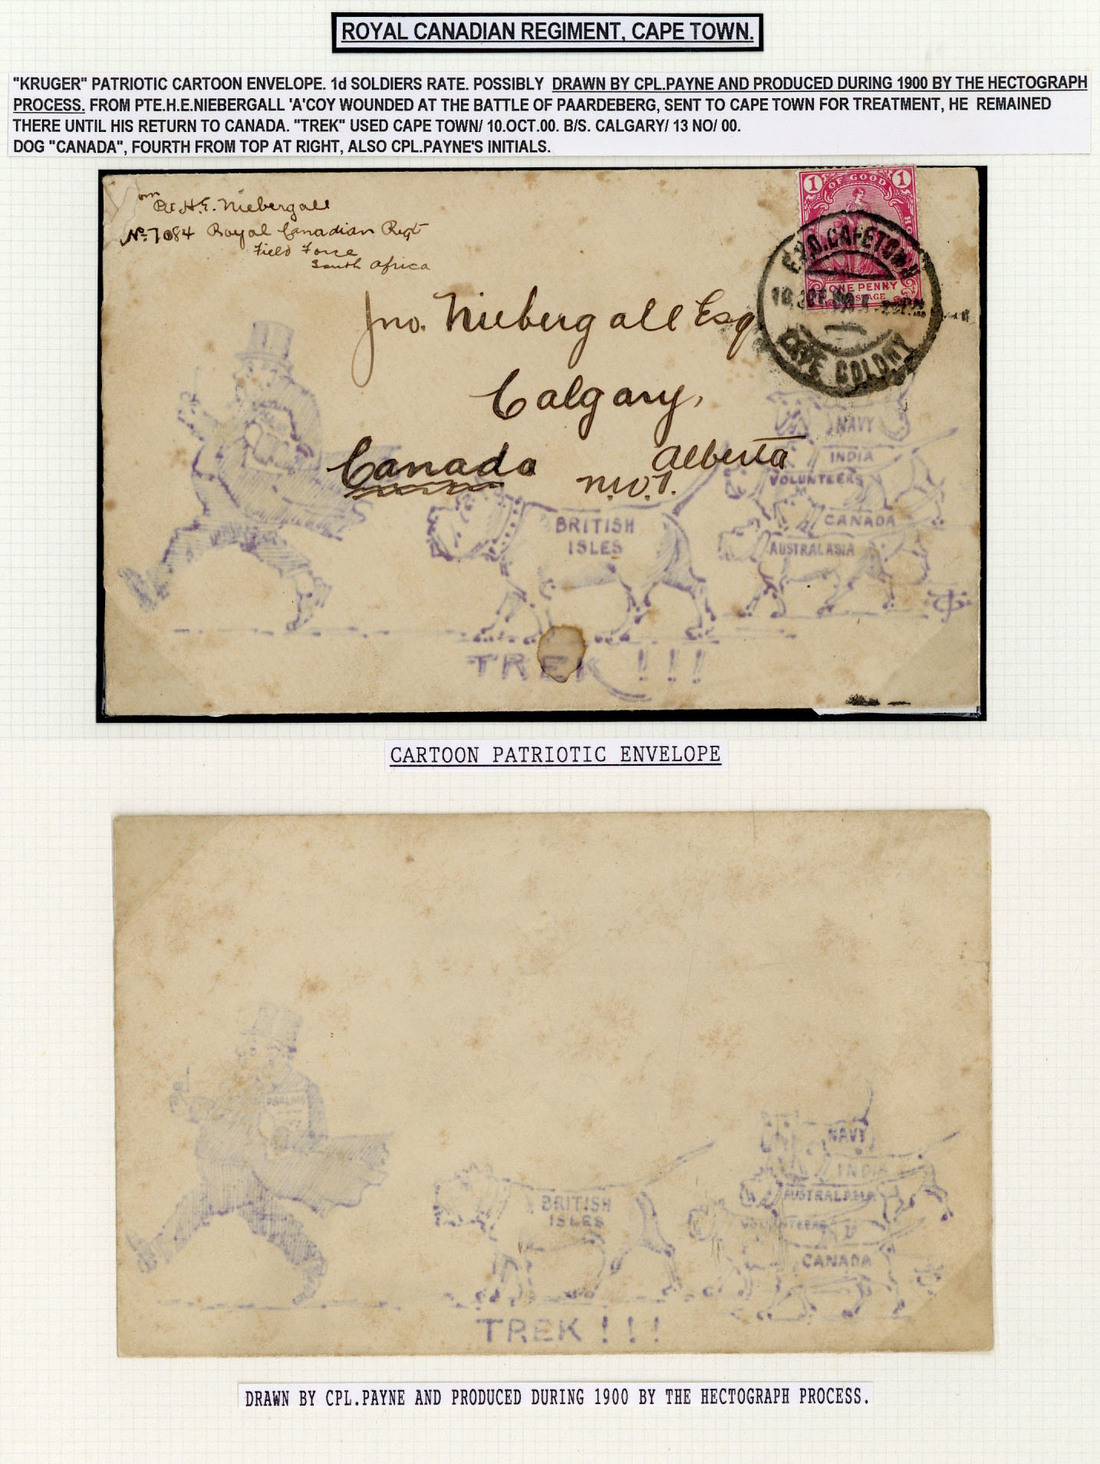 ROYAL CANADIAN REGIMENT, CAPE TOWN.
"KRUGER" PATRIOTIC CARTOON ENVELOPE. 1d SOLDIERS RATE. POSSIBLY DRAWN BY CPL.PAYNE AND PRODUCED DURING 1900 BY THE HECTOGRAPH
PROCESS. FROM PTE.H.E.NIEBERGALL 'A'COY WOUNDED AT THE BATTLE OF PAARDEBERG, SENT TO CAPE TOWN FOR TREATMENT, HE REMAINED
THERE UNTIL HIS RETURN TO CANADA. "TREK" USED CAPE TOWN/ 10.OCT.00. B/S. CALGARY/ 13 NO/ 00.
DOG "CANADA", FOURTH FROM TOP AT RIGHT, ALSO CPL.PAYNE'S INITIALS.
Pte H.E. Niebergall
No 7084 Royal Canadian Regt
Field Force
South Africa
1 OF GOOD 1
ONE PENNY
G.P.O. CAPETOWN
CAPE COLONY
Jno. Niebergall Esq
Calgary,
Alberta
Canada
N.W.T.
NAVY
INDIA
VOLUNTEERS
CANADA
AUSTRALASIA
BRITISH
ISLES
TREK !!!
CARTOON PATRIOTIC ENVELOPE
PSALMS
NAVY
INDIA
AUSTRALASIA
VOLUNTEERS
CANADA
BRITISH
ISLES
TREK !!!
DRAWN BY CPL.PAYNE AND PRODUCED DURING 1900 BY THE HECTOGRAPH PROCESS.